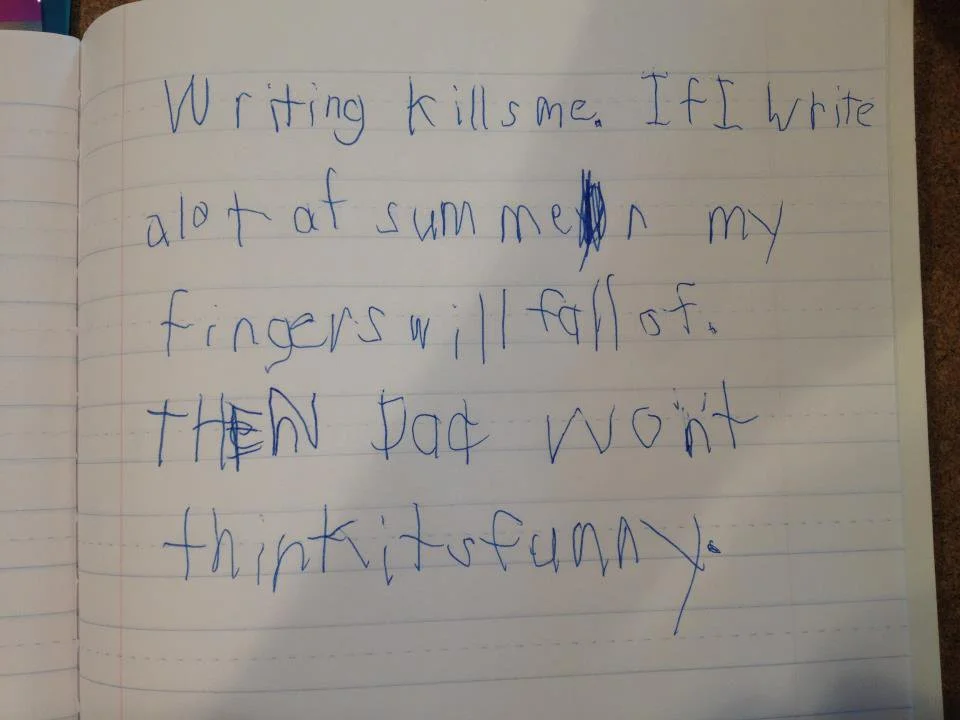 Writing kills me. If I write
alot at summer my
fingers will fall of.
THEN Dad won't
think its funny.